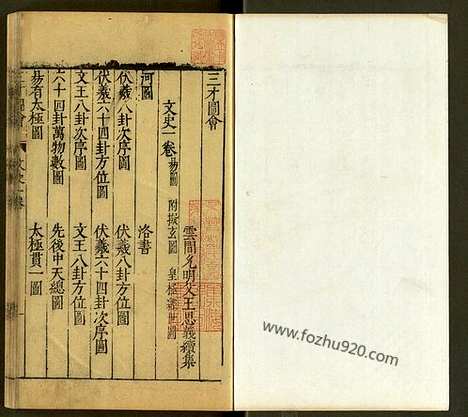 三才圖會
文史一卷 易圖 附擬玄圖 皇極經世圖
雲間允明父王思義續集
河圖 洛書
伏羲八卦次序圖 伏羲八卦方位圖
伏羲六十四卦方位圖 伏羲六十四卦次序圖
文王八卦次序圖 文王八卦方位圖
六十四卦萬物數圖 先後中天總圖
易有太極圖 太極貫一圖
www.fozhu920.com